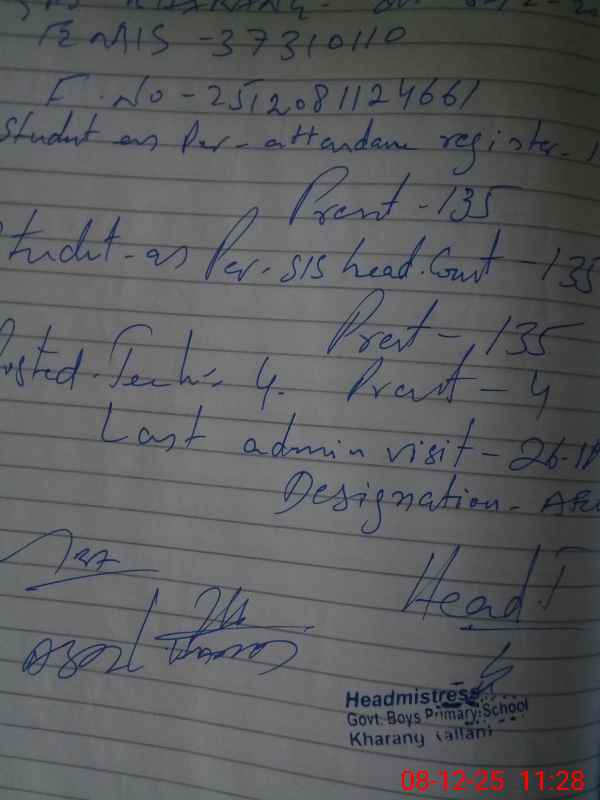 EMIS - 37310110
F. No - 2512081124661
Student as Per - attendance register -
Present - 135
Student - as Per. SIS head. Count - 135
Present - 135
Posted. Teach:- 4. Present - 4
Last admin visit - 26-11
Designation - AE
Head.T
Headmistress
Govt. Boys Primary School
Kharang
08-12-25 11:28